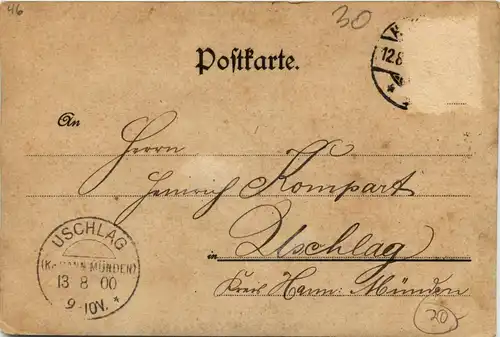 46
30
Postkarte.
12.8
An
Herrn
Heinrich Kompart
in Uschlag
Kreis Hann: Münden
USCHLAG
(Kr. HANN. MÜNDEN)
13 8 00
9-10V. *
20